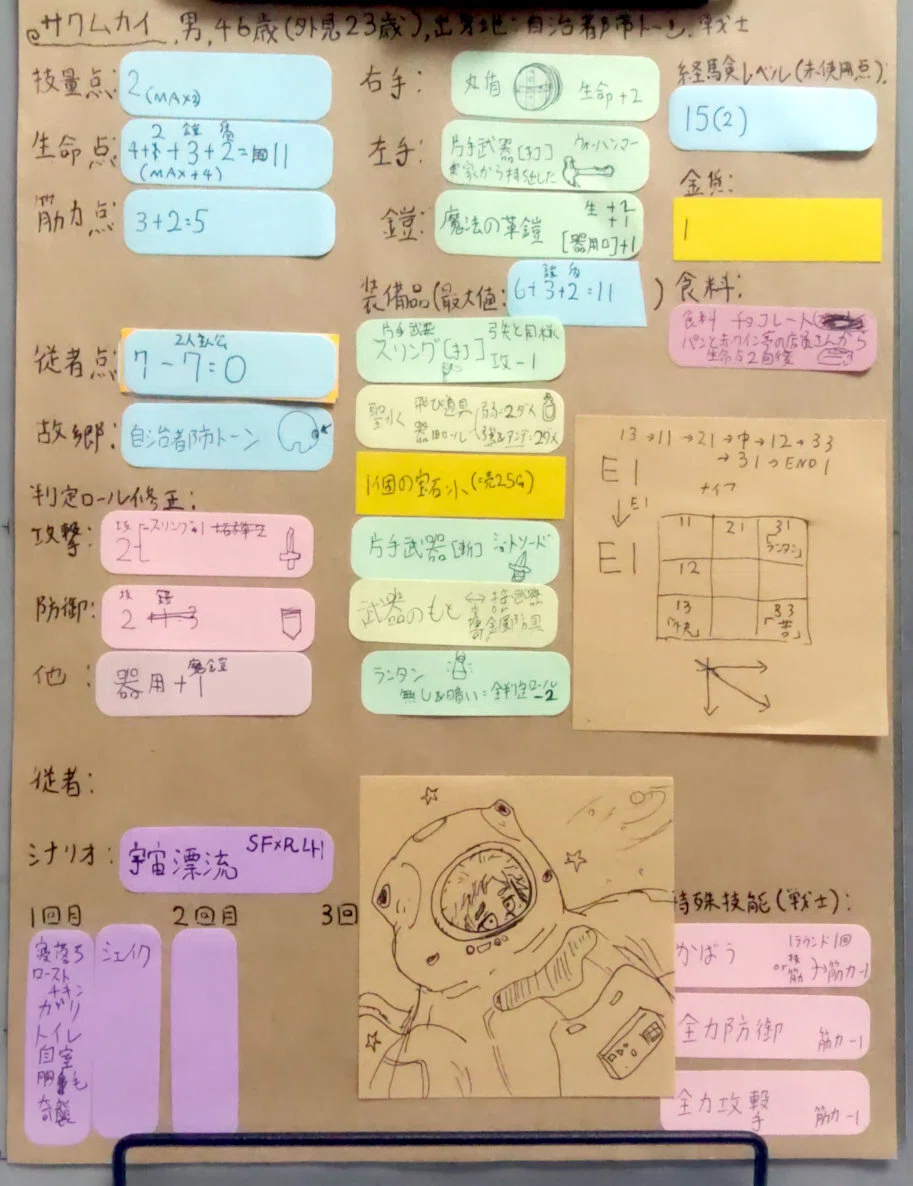 サクムカイ, 男, 46歳(外見23歳), 出身地:自治都市トーン, 戦士
技量点:
2 (MAX2)
生命点:
2 鎧 盾
4+1+3+2=11
(MAX+4)
筋力点:
3+2=5
右手:
丸盾 生命+2
左手:
片手武器[打] ウォーハンマー
実家から持ち出した
鎧:
魔法の革鎧
生+2
+1
[器用ロ]+1
経験レベル(未使用点):
15(2)
金貨:
1
食料:
食料 チョコレート
生命点2回復
装備品(最大値:
6+3+2=11
)
従者点:
2人主人公
7-7=0
故郷:
自治都市トーン
判定ロール修正:
攻撃:
技
2
スリング-1
防御:
技
2
他:
器用+1
魔鎧
片手武器 弓矢と同様
スリング[打] 攻-1
聖水
飛び道具
器用ロール
1個の宝石小(売25G)
片手武器[斬] ショートソード
武器のもと
ランタン
無し&暗い=全判定ロール-2
13→11→21→中→12→33
→31→END1
ナイフ
E1
↓E1
E1
11 21 31
「ランタン」
12
13 33
従者:
シナリオ:
宇宙漂流 SF×RLH
1回目 2回目 3回
寝落ち
ロースト
チキン
ガリ
トイレ
自室
シェイク
特殊技能(戦士):
かばう
1ラウンド1回
筋力-1
全力防御 筋力-1
全力攻撃 筋力-1